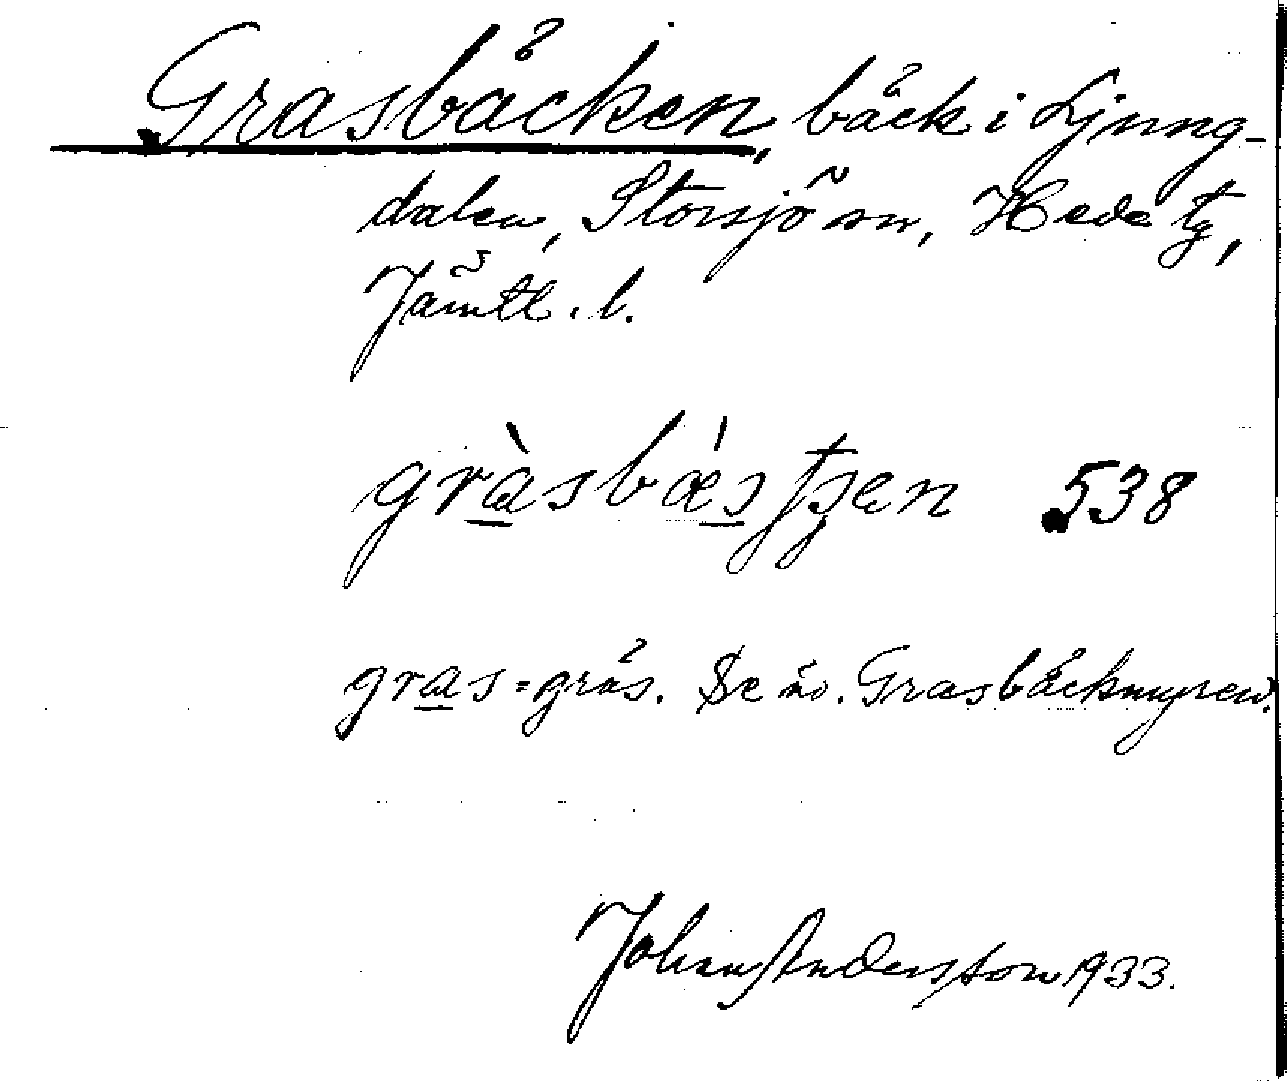 Grasbäcken, bäck i Ljung-
dalen, Storsjö sn, Hede tg,
Jämtl. l.
gràsbǽstʂen 538
gras = gräs. Se äv. Grasbäckmyren.
Johan Andersson 1933.